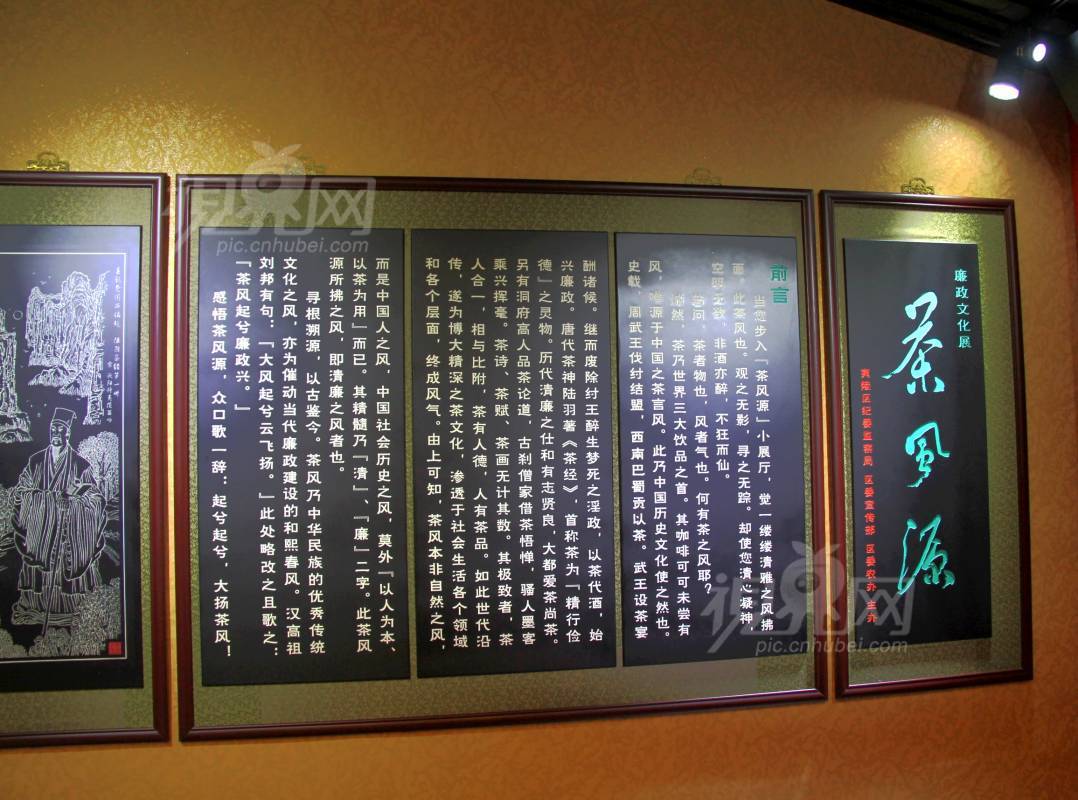 廉政文化展
茶风源
夷陵区纪委监察局 区委宣传部 区委农办 主办
前言
当您步入「茶风源」小展厅，觉一缕缕清雅之风拂
面，此茶风也。观之无影，寻之无踪。却使您清心凝神，
空明无欲，非酒亦醉，不狂而仙。
若问，茶者物也，风者气也。何有茶之风耶？
诚然，茶乃世界三大饮品之首。其咖啡可可未尝有
风，唯源于中国之茶言风。此乃中国历史文化使之然也。
史载，周武王伐纣结盟，西南巴蜀贡以茶。武王设茶宴
酬诸候。继而废除纣王醉生梦死之淫政，以茶代酒，始
兴廉政。唐代茶神陆羽著《茶经》，首称茶为「精行俭
德」之灵物。历代清廉之仕和有志贤良，大都爱茶尚茶。
另有洞府高人品茶论道，古刹僧家借茶悟惮，骚人墨客
乘兴挥毫。茶诗、茶赋、茶画无计其数。其极致者，茶
人合一，相与比附，茶有人德，人有茶品。如此世代沿
传，遂为博大精深之茶文化，渗透于社会生活各个领域
和各个层面，终成风气。由上可知，茶风本非自然之风，
而是中国人之风，中国社会历史之风，莫外「以人为本、
以茶为用」而已。其精髓乃「清」、「廉」二字。此茶风
源所拂之风，即清廉之风者也。
寻根溯源，以古鉴今。茶风乃中华民族的优秀传统
文化之风，亦为催动当代廉政建设的和熙春风。汉高祖
刘邦有句：「大风起兮云飞扬。」此处略改之且歌之：
「茶风起兮廉政兴。」
感悟茶风源，众口歌一辞：起兮起兮，大扬茶风！
视界网
pic.cnhubei.com
视界网
pic.cnhubei.com